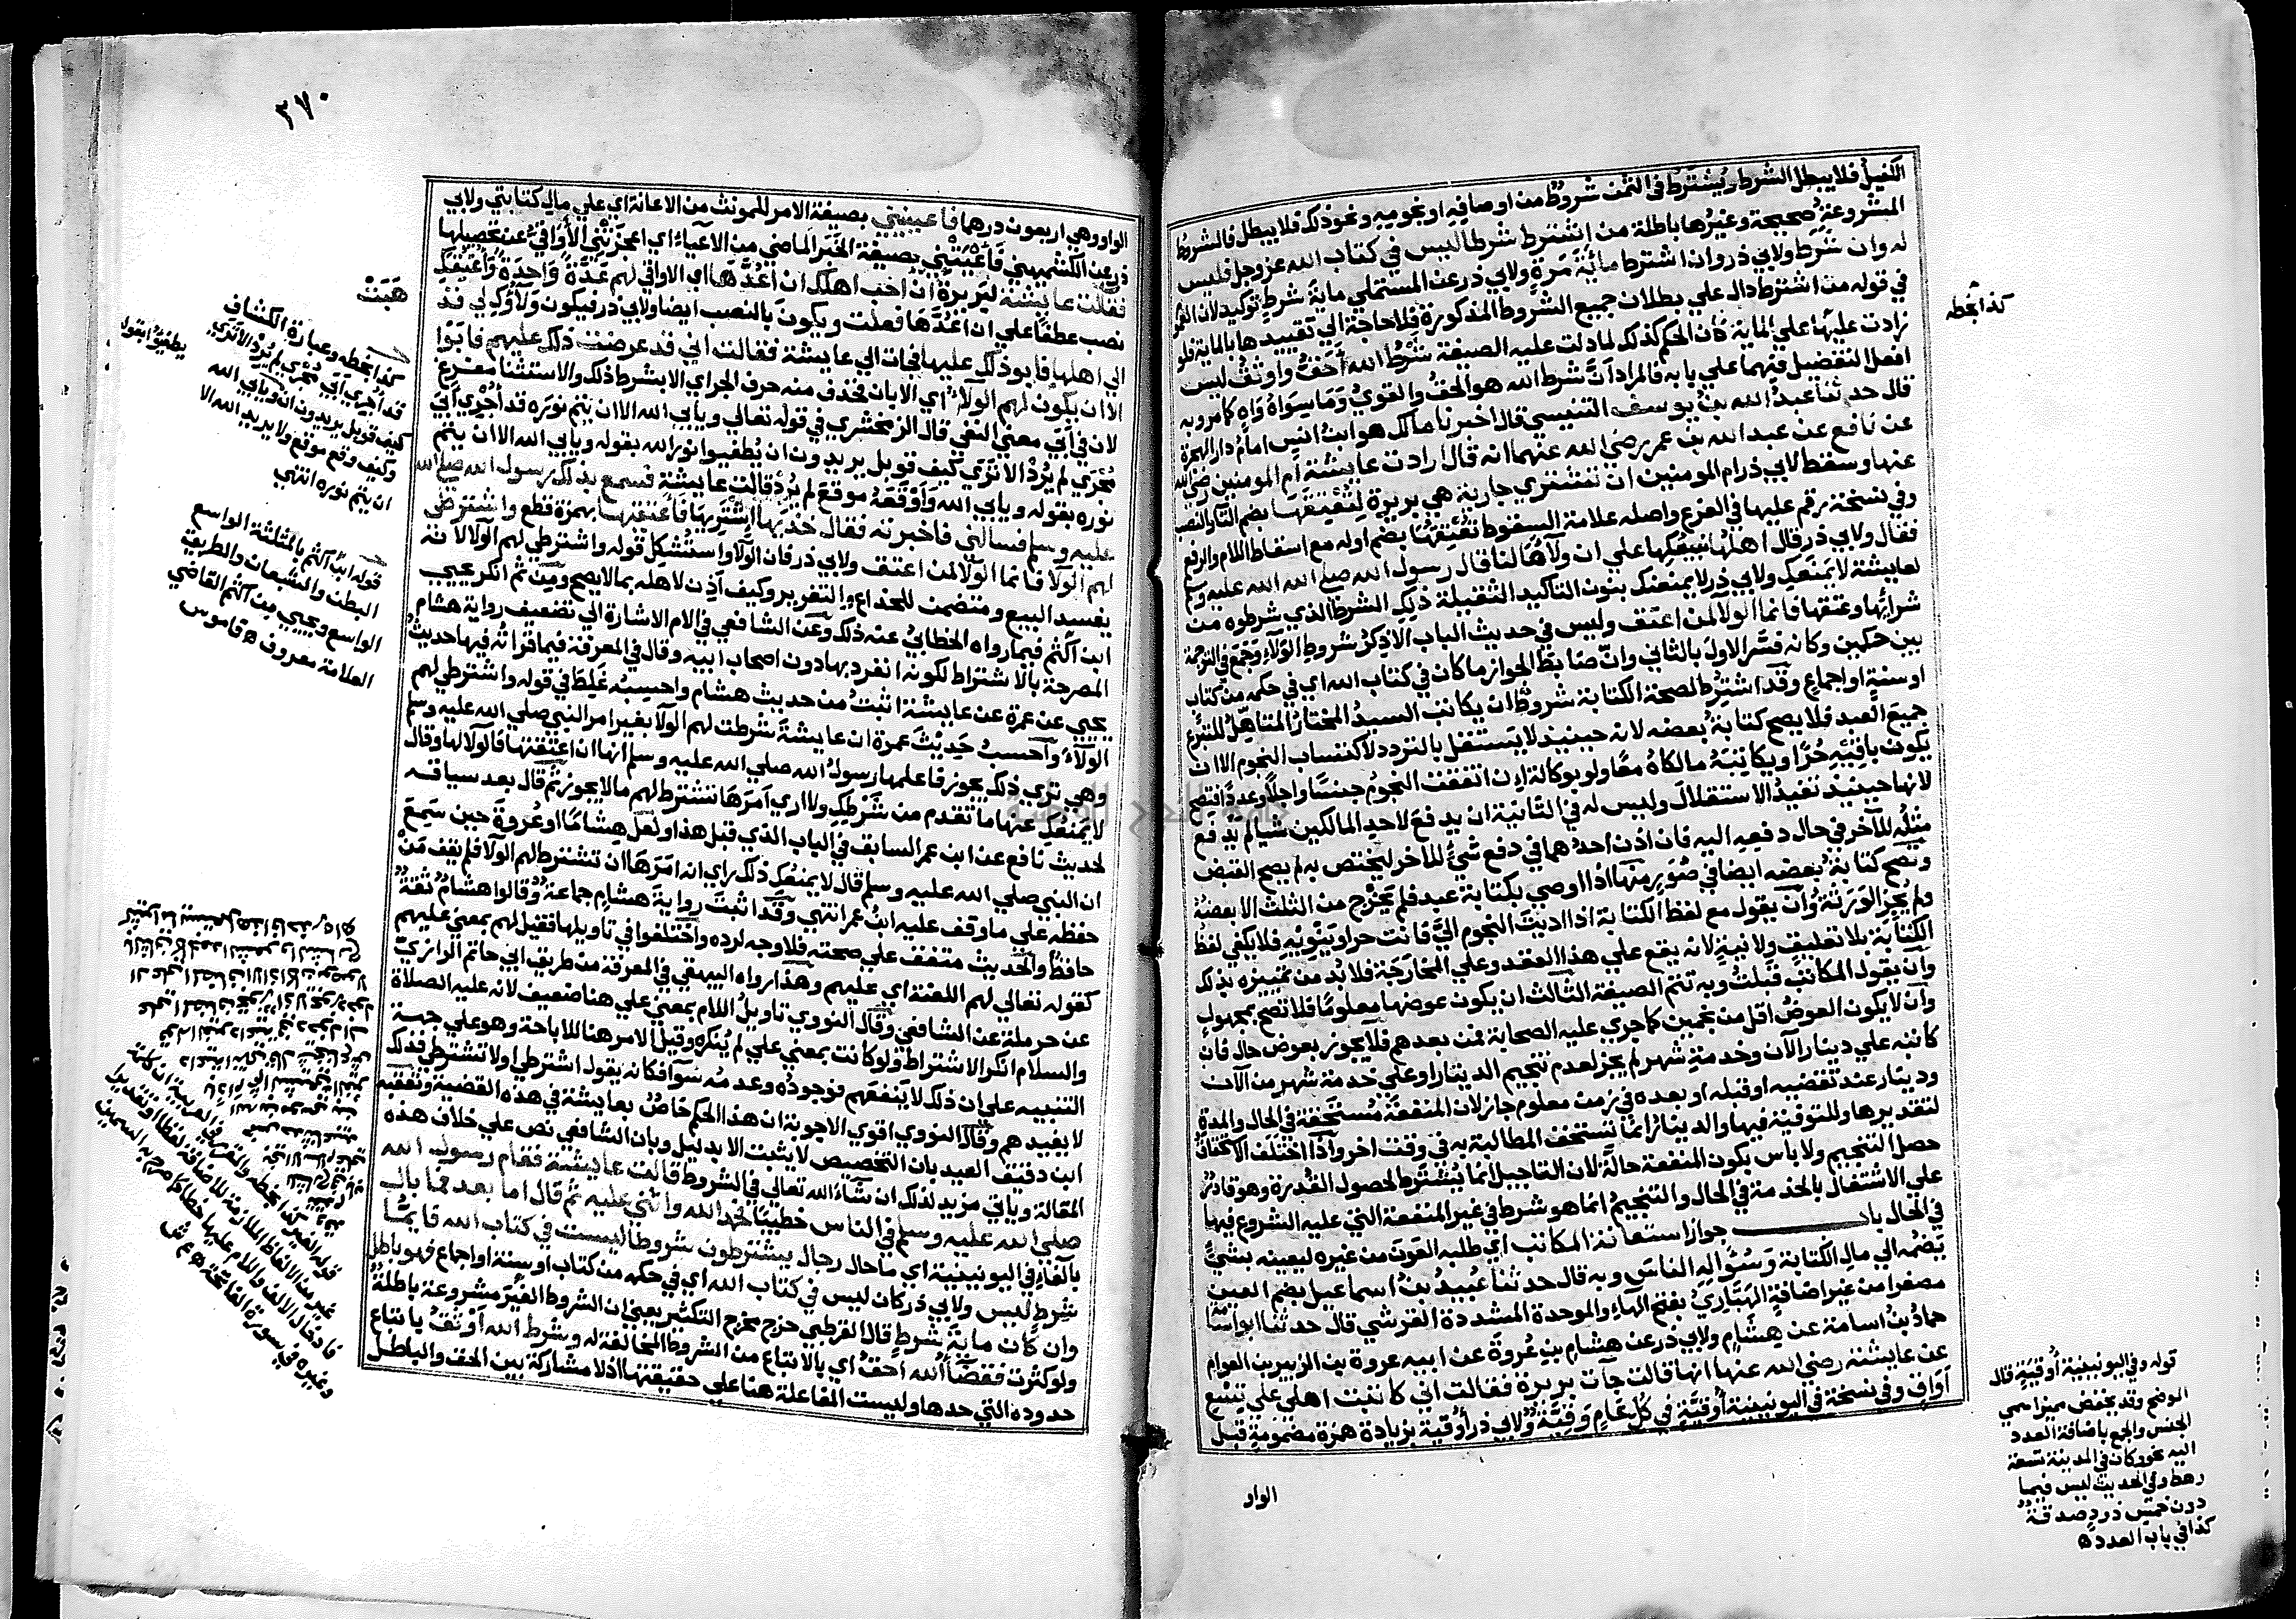 الكفيل فلا يبطل الشرط ويشترط في الثمن شروط من اوصافه او نجومه ونحو ذلك فلا يبطل فالشروط
المشروعة صحيحة وغيرها باطلة من اشترط شرطا ليس في كتاب الله عز وجل فليس
له وان شرط ولابي ذر وان اشترط مائة مرة ولابي ذر عن المستملي مائة شرط توكيد لان العموم
في قوله من اشترط دال علي بطلان جميع الشروط المذكورة فلا حاجة الي تقييدها بالمائة فلو
زادت عليها علي المائة كان الحكم كذلك لما دلت عليه الصيغة شرط الله احق واوثق ليس
افعل التفضيل فيهما علي بابه فالمراد ان شرط الله هو الحق والقوي وما سواه واه كما مر وبه
قال حدثنا عبد الله بن يوسف التنيسي قال اخبرنا مالك هو ابن انس امام دار الهجرة
عن نافع عن عبد الله بن عمر رضي الله عنهما انه قال ارادت عايشة ام المومنين رضي الله
عنها وسقط لابي ذر ام المومنين ان تشتري جارية هي بريرة لتعتقها بضم التاء والنصب
وفي نسخة رقم عليها في الفرع واصله علامة السقوط تعتقها بضم اوله مع اسقاط اللام والرفع
فقال ولابي ذر قال اهلها نبيعكها علي ان ولاها لنا قال رسول الله صلي الله عليه وسلم
لعايشة لا يمنعك ولابي ذر لا يمنعنك بنون التاكيد الثقيلة ذلك الشرط الذي شرطوه من
شرائها وعتقها فانما الولا لمن اعتق وليس في حديث الباب الا ذكر شروط الولاء وجمع في الترجمة
بين حكمين وكانه فسر الاول بالثاني وان ضابط الجواز ما كان في كتاب الله اي في حكمه من كتاب
او سنة او اجماع وقد اشترط لصحة الكتابة شروط ان يكاتب السيد المختار المتاهل للتبرع
جميع العبد فلا يصح كتابة بعضه لانه حينيذ لا يستقل بالتردد لاكتساب النجوم الا ان
يكون باقيه حرا ويكاتبه مالكاه معا ولو بوكالة ان اتفقت النجوم جنسا واجلا وعددا فتصح
لانها حينيذ تفيد الاستقلال وليس له في الثانية ان يدفع لاحد المالكين شيا لم يدفع
مثله للاخر في حال دفعه اليه فان اذن احدهما في دفع شي للاخر ليختص به لم يصح القبض
وتصح كتابة بعضه ايضا في صور منها اذا اوصي بكتابة عبد فلم يخرج من الثلث الا بعضه
ولم يجز الورثة وان يقول مع لفظ الكتابة اذا اديت النجوم الي فانت حر او ينويه فلا يكفي لفظ
الكتابة بلا تعليق ولا نية لانه يقع علي هذا العقد وعلي المخارجة فلا بد من تمييزه بذلك
وان يقول المكاتب قبلت وبه تتم الصيغة الثالث ان يكون عوضها معلوما فلا تصح بمجهول
وان لا يكون العوض اقل من نجمين كما جري عليه الصحابة فمن بعدهم فلا يجوز بعوض حال فان
كاتبه علي دينار الآن وخدمة شهر لم يجز لعدم تنجيم الدينار او علي خدمة شهر من الآن
ودينار عند تقضيه او قبله او بعده في زمن معلوم جاز لان المنفعة مستحقة في الحال والمدة
لتقديرها وللتوفية فيها والدينار انما تستحق المطالبة به في وقت اخر واذا اختلف الاستحقاق
حصل التنجيم ولا باس بكون المنفعة حالة لان التاجيل انما يشترط لحصول القدرة وهو قادر
علي الاشتغال بالخدمة في الحال والتنجيم انما هو شرط في غير المنفعة التي عليه الشروع فيها
في الحال باب جواز استعانة المكاتب اي طلبه العون من غيره ليعينه بشي
يضمه الي مال الكتابة وسؤاله الناس وبه قال حدثنا عبيد بن اسماعيل بضم العين
مصغرا من غير اضافة الهباري بفتح الهاء والموحدة المشددة القرشي قال حدثنا ابو اسامة
حماد بن اسامة عن هشام ولابي ذر عن هشام بن عروة عن ابيه عروة بن الزبير بن العوام
عن عايشة رضي الله عنها انها قالت جآت بريرة فقالت اني كاتبت اهلي علي تسع
اواق وفي نسخة في اليونينية أوقية في كل عام وقية ولابي ذر أوقية بزيادة همزة مضمومة قبل
الواو
كذا بخطه
قوله وفي اليونينية أوقية قال
الموضح وقد يخفض مميز اسمي
الجنس والجمع باضافة العدد
اليه نحو وكان في المدينة تسعة
رهط وفي الحديث ليس فيما
دون خمس ذود صدقة
كذا في باب العدد ه
٢٧٠
الواو وهي اربعون درهما فاعينيني بصيغة الامر للمونث من الاعانة اي علي مال كتابتي ولابي
ذر عن الكشميهني فاعيتني بصيغة الخبر الماضي من الاعياء اي اعجزتني الأواقي عن تحصيلها
فقالت عايشة لبريرة ان احب اهلك ان اعدها اي الاواقي لهم عدة واحدة واعتقك
نصب عطفا علي ان اعدها فعلت ويكون بالنصب ايضا ولابي ذر فيكون ولاؤك لي فذهبت
الي اهلها فابوا ذلك عليها فجات الي عايشة فقالت اني قد عرضت ذلك عليهم فابوا
الا ان يكون لهم الولاء اي الا بان فحذف منه حرف الجر اي الا بشرط ذلك والاستثنا مفرع
لان في ابي معني النفي قال الزمخشري في قوله تعالي ويابي الله الا ان يتم نوره قد اجري ابي
مجري لم يرد الا تري كيف قوبل يريدون ان يطفيوا نور الله بقوله ويابي الله الا ان يتم
نوره بقوله ويابي الله واوقعه موقع لم يرد قالت عايشة فسمع بذلك رسول الله صلي الله
عليه وسلم فسالني فاخبرته فقال خذيها اشتريها فاعتقيها بهمزة قطع واشترطي
لهم الولا فانما الولا لمن اعتق ولابي ذر فان الولا واستشكل قوله واشترطي لهم الولا لانه
يفسد البيع ومتضمن للخداع والتغرير وكيف اذن لاهله بما لا يصح ومن ثم انكر يحيي
ابن اكثم فيما رواه الخطابي عنه ذلك وعن الشافعي في الام الاشارة الي تضعيف رواية هشام
المصرحة بالاشتراط لكونه انفرد بها دون اصحاب ابيه وقال في المعرفة فيما قراته فيها حديث
يحيي عن عمرة عن عايشة اثبت من حديث هشام واحسبه غلط في قوله واشترطي لهم
الولاء واحسب حديث عمرة ان عايشة شرطت لهم الولا بغير امر النبي صلي الله عليه وسلم
وهي تري ذلك يجوز فاعلمها رسول الله صلي الله عليه وسلم انها ان اعتقتها فالولا لها وقال
لا يمنعك عنها ما تقدم من شرطك ولا اري امرها تشترط لهم مالا يجوز ثم قال بعد سياقه
لحديث نافع عن ابن عمر السابق في الباب الذي قبل هذا ولعل هشاما او عروة حين سمع
ان النبي صلي الله عليه وسلم قال لا يمنعك ذلك راي انه امرها ان تشترط لهم الولا فلم يقف من
حفظه علي ما وقف عليه ابن عمر انتهي وقد اثبت رواية هشام جماعة وقالوا هشام ثقة
حافظ والحديث متفق علي صحته فلا وجه لرده واختلفوا في تاويلها فقيل لهم بمعني عليهم
كقوله تعالي لهم اللعنة اي عليهم وهذا رواه البيهقي في المعرفة من طريق ابي حاتم الرازي
عن حرملة عن الشافعي وقال النووي تاويل اللام بمعني علي هنا ضعيف لانه عليه الصلاة
والسلام انكر الاشتراط ولو كانت بمعني علي لم ينكره وقيل الامر هنا للاباحة وهو علي جهة
التنبيه علي ان ذلك لا ينفعهم فوجوده وعدمه سوآ فكانه يقول اشترطي او لا تشترطي فذلك
لا يفيدهم وقال النووي اقوي الاجوبة ان هذا الحكم خاص بعايشة في هذه القضية وتعقبه
ابن دقيق العيد بان التخصيص لا يثبت الا بدليل وبان الشافعي نص علي خلاف هذه
المقالة وياتي مزيد لذلك ان شاء الله تعالي في الشروط قالت عايشة فقام رسول الله
صلي الله عليه وسلم في الناس خطيبا فحمد الله واثني عليه ثم قال اما بعد فما بال
بالفاء في اليونينية اي ما حال رجال يشترطون شروطا ليست في كتاب الله فايما
شرط ليس ولابي ذر كان ليس في كتاب الله اي في حكمه من كتاب او سنة او اجماع فهو باطل
وان كان ماية شرط قال القرطبي خرج مخرج التكثير يعني ان الشروط الغير مشروعة باطلة
ولو كثرت فقضآ الله احق اي بالاتباع من الشروط المخالفة له وشرط الله أوثق باتباع
حدوده التي حدها وليست المفاعلة هنا علي حقيقتها اذ لا مشاركة بين الحق والباطل
هبت
كذا بخطه وعبارة الكشاف
قد اجري ابي مجري لم يرد الا تري
كيف قوبل يريدون ان ويابي الله
وكيف وقع موقع ولا يريد الله الا
ان يتم نوره انتهي
يطفيوا بقوله
قوله ابن اكثم بالمثلثة الواسع
البطن والشبعان والطريق
الواسع ويحيي بن اكثم القاضي
العلامة معروف ه قاموس
قوله الغير كذا بخطه
غير من الالفاظ الملازمة للاضافة لفظا او تقديرا
فادخال الالف واللام عليها خطا كما صرح به السمين
وغيره في سورة الفاتحة ه ع ش